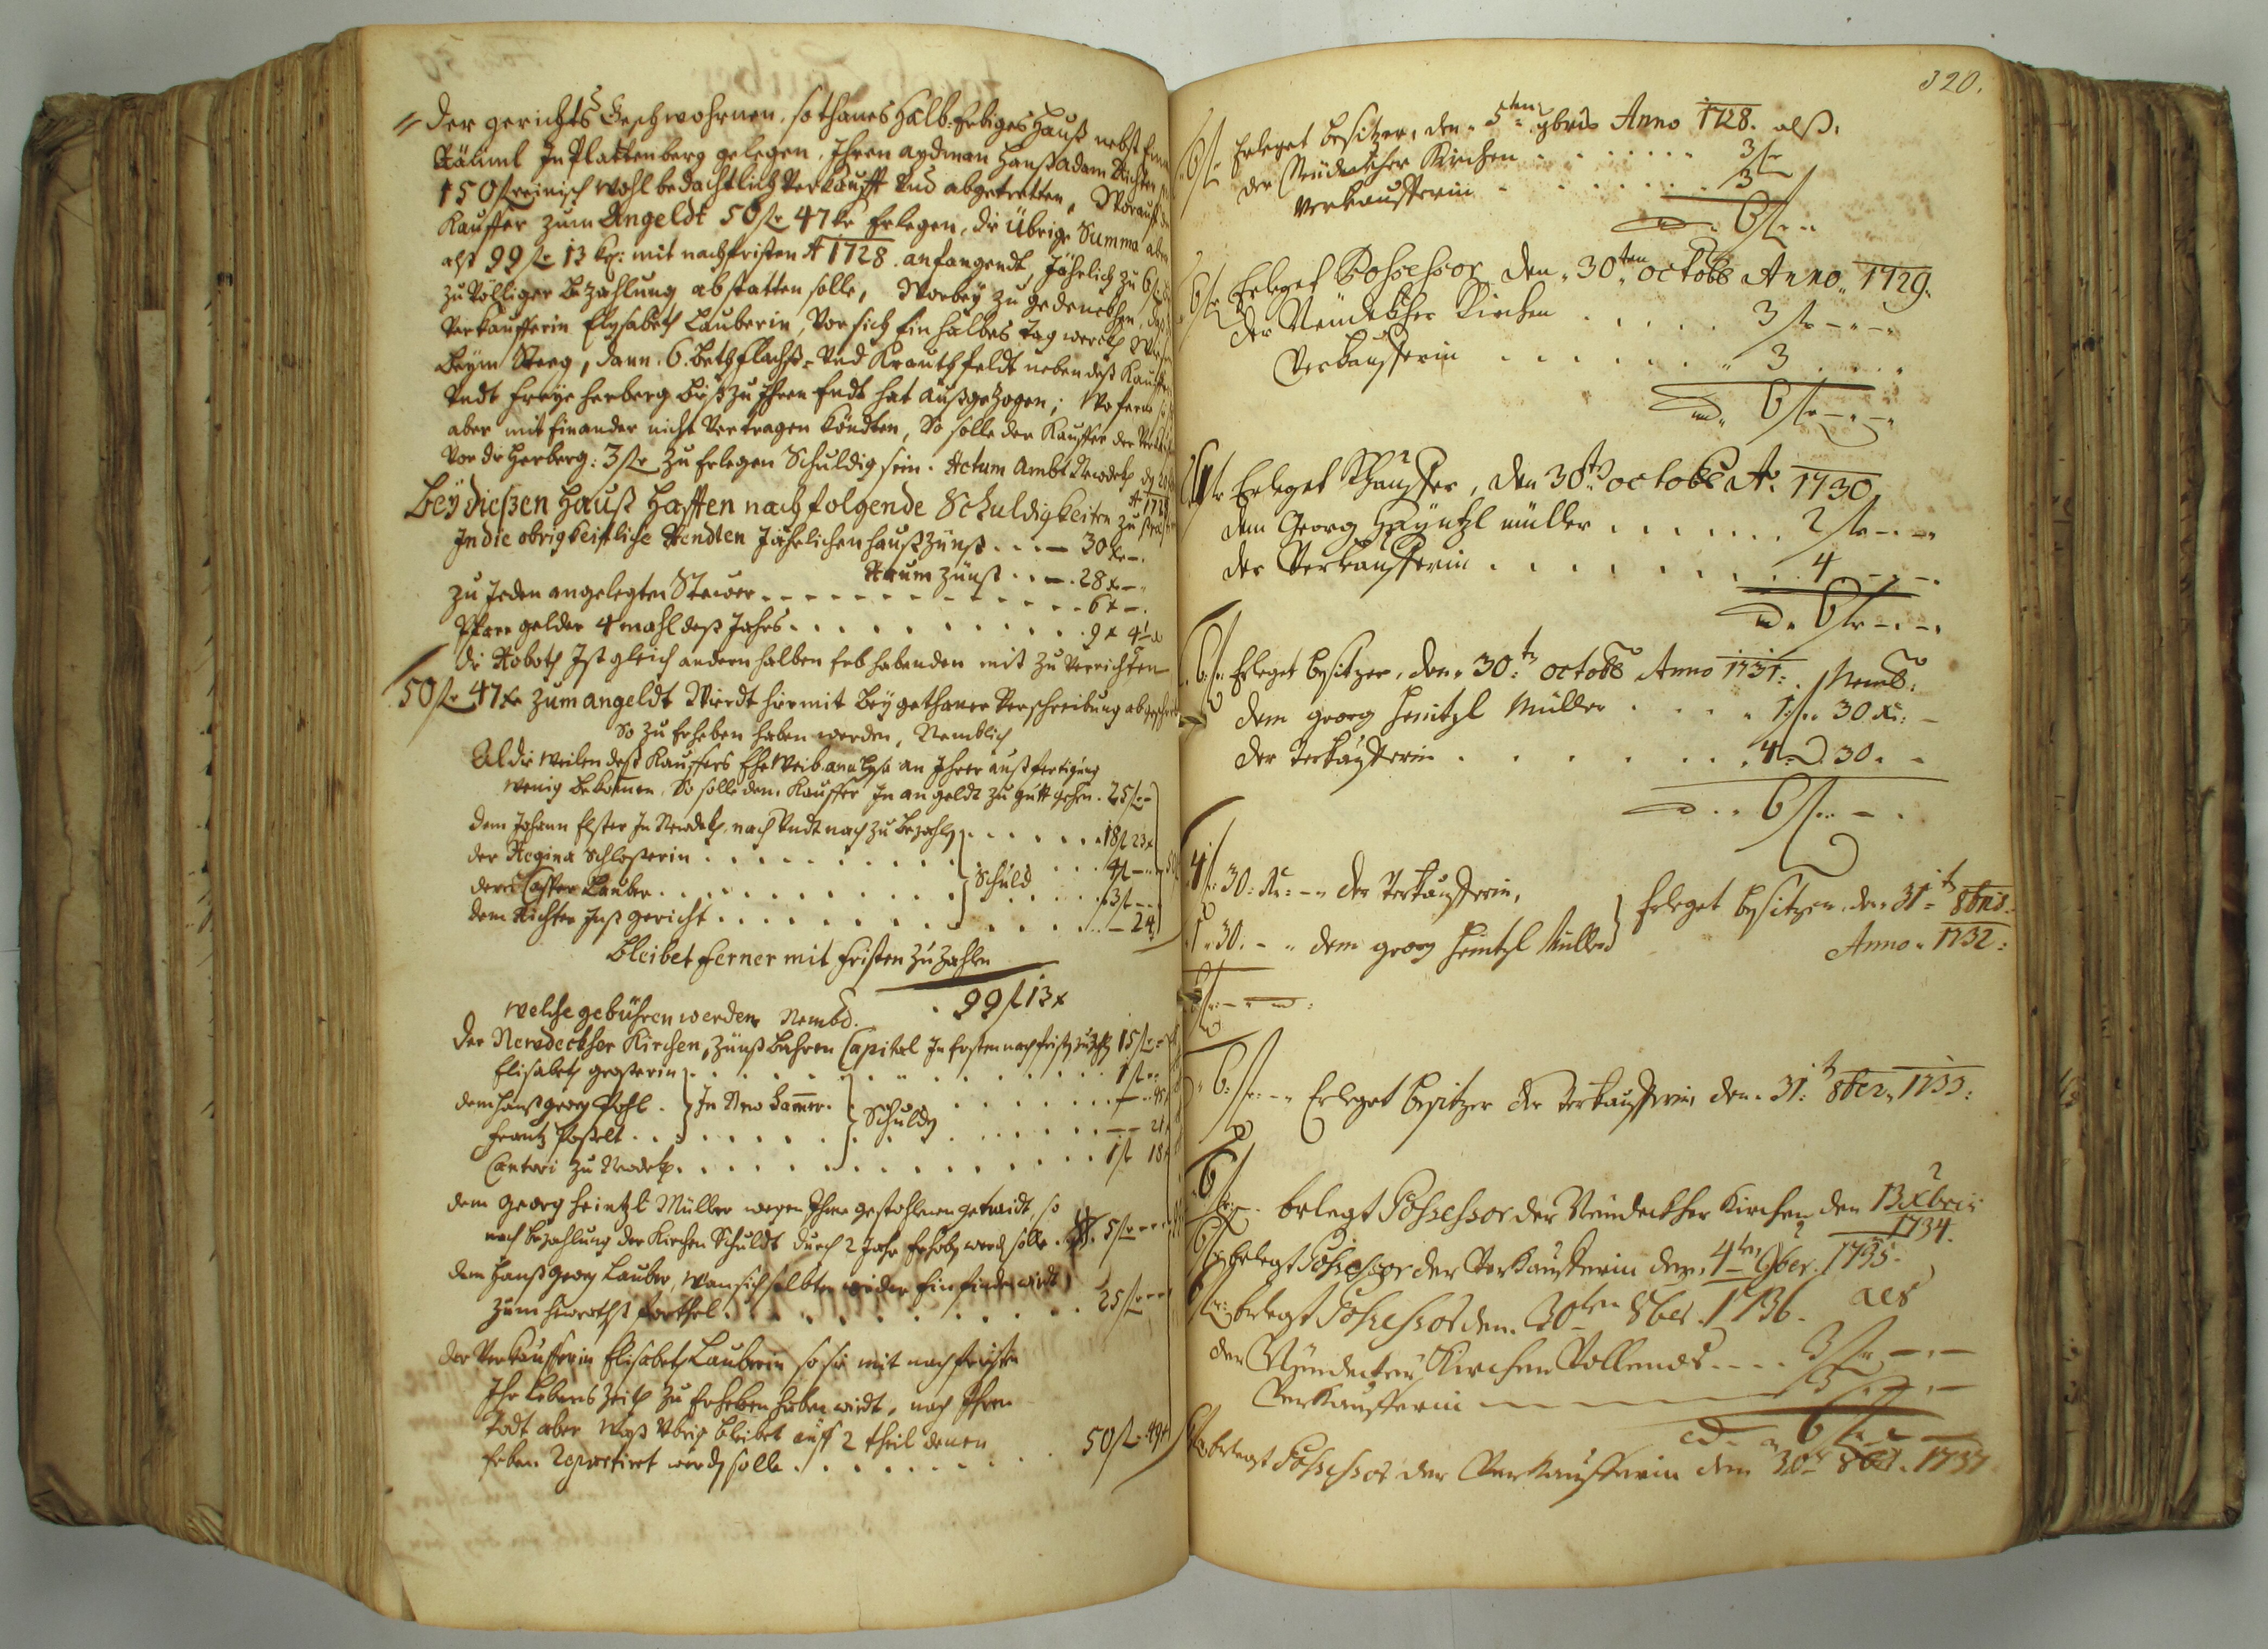 der gerichts Geschwohrnen, so thanes Halb-Erbiges Hauß nebst
Räuml In Plattenberg gelegen, Ihren aydman Hanß Adam Richter
150 f reinisch wohl bedächtlich verkaufft und abgetretten, Worauf
Kauffer zum Angeldt 50 fr 47 kr Erlegen, die Übrige Summa aber
alß 99 fr 13 kr: mit nachfristen A 1728 anfangendt, Jährlich zu 6 fr
zu völliger bezahlung abstatten solle, Worbey zu gedenckhen, daß
Verkaufferin Elisabeth Lauberin, vor sich Ein halbes tag werckh
beym Steeg, dann 6 beth flachß- und Krauth feldt neben deß Kauffers
Undt freye herberg biß zu Ihren Endt hat außgezogen; Wofern sie
aber mit Einander nicht Vertragen köndten, So solle der Kauffer der
vor die Herberg: 3 fr zu Erlegen Schuldig sein. Actum Ambt Newdekh
A 1728
Bey dießen Hauß Hafften nachfolgende Schuldigkeiten zu
In die obrigkeitliche Rendten Jährlichen haußzünß . . . 30 kr
Raum Zünß . . 28 x
zu Jeden angelegten Stewer . . . 6 x
Pfarr gelder 4 mahl deß Jahrs . . . 9 x 4
die Roboth Ist gleich andern halben Erb habenden mit zu verrichten
50 fr 47 kr zum angeldt Wirdt hiermit bey gethaner Verschreibung
So zu Erheben haben werden, Nemblich
Aldieweilen deß Kauffers Eheweib an Ihrer außfertigung
wenig bekommen, So solle dem Kauffer In angeldt zu gutt gehen . 25 fr
dem Johann Elster In Newdekh nach Undt nach zu bezahlen . . . 18 f 23 x
der Regina Schloßerin . . . Schuld . . . 4 f
dem Casper Lauber . . . 3 f
dem Richter Inß gericht . . . 24
Bleibet ferner mit fristen zu zahlen
99 f 13 x
welche gebühren werden Nembl.
Der Newdeckher Kirchen, Zünßbahren Capital In Ersten nachfrist 15 fr
Elisabeth großerin . . . 1 fr
dem Hanß georg Pohl . In New hammer . Schuldig . . . 45
Frantz Poßelt . . . 21
Cantori zu Newdekh . . . 1 fr 18
dem Georg Heintzl Müller wegen Ihme gestohlenen getraidt, so
nach bezahlung der Kirchen Schuldt durch 2 Jahr Erhoben werden solle . 5 fr
dem Hanß georg Lauber, wan sich selbter wider Einfinden wirdt
zum heyraths forthel . . . 25 fr
der Verkaufferin Elisabeth Lauberin so sie mit nachfristen
Ihr lebens Zeith zu Erheben haben wirdt, nach Ihren
Todt aber waß übrig bleibet auff 2 theil denen
Erben Repartirt werden solle . . . 50 fr 49
320.
6 fr Erleget Besitzer, den 5ten 9bris Anno 1728. alß,
der Neudeckher Kirchen . . . 3 fr
Verkaufferin . . . 3
6 fr
6 fr Erleget Possessor den 30ten octobr Anno 1729.
der Neudekher Kirchen . . . 3 fr
Verkaufferin . . . 3
6 fr
6 fr Erleget Khauffer, den 30ten octobr A: 1730
dem Georg Häyntzl müller . . . 2 fr
der Verkaufferin . . . 4
6 fr
6 fr Erleget Besitzer, den 30t octobr Anno 1731: Nembl:
dem georg Heintzl Müller . . . 1 fr 30 Kr:
der Verkaufferin . . . 4 30
6 fr
4 fr 30: Kr: der Verkaufferin,
Erleget Besitzer, den 31t 8bris
1 30. dem georg Heintzl Müller
Anno 1732:
6 fr
6: fr: Erleget Besitzer der Verkaufferin, den 31t 8ber, 1733:
6 fr: Erlegt Possessor der Neudeckher Kirchen den 13 Xbris
1734.
6 fr Erlegt Possessor der Verkaufferin den 4ten 9ber. 1735.
6 fr: Erlegt Possessor den 30ten 8ber 1736. als
der Neudecker Kirchen Vollends . . . 3 fr
Verkaufferin 3
6 fr
6 fr Erlegt Possessor der Verkaufferin den 30t 8br. 1737